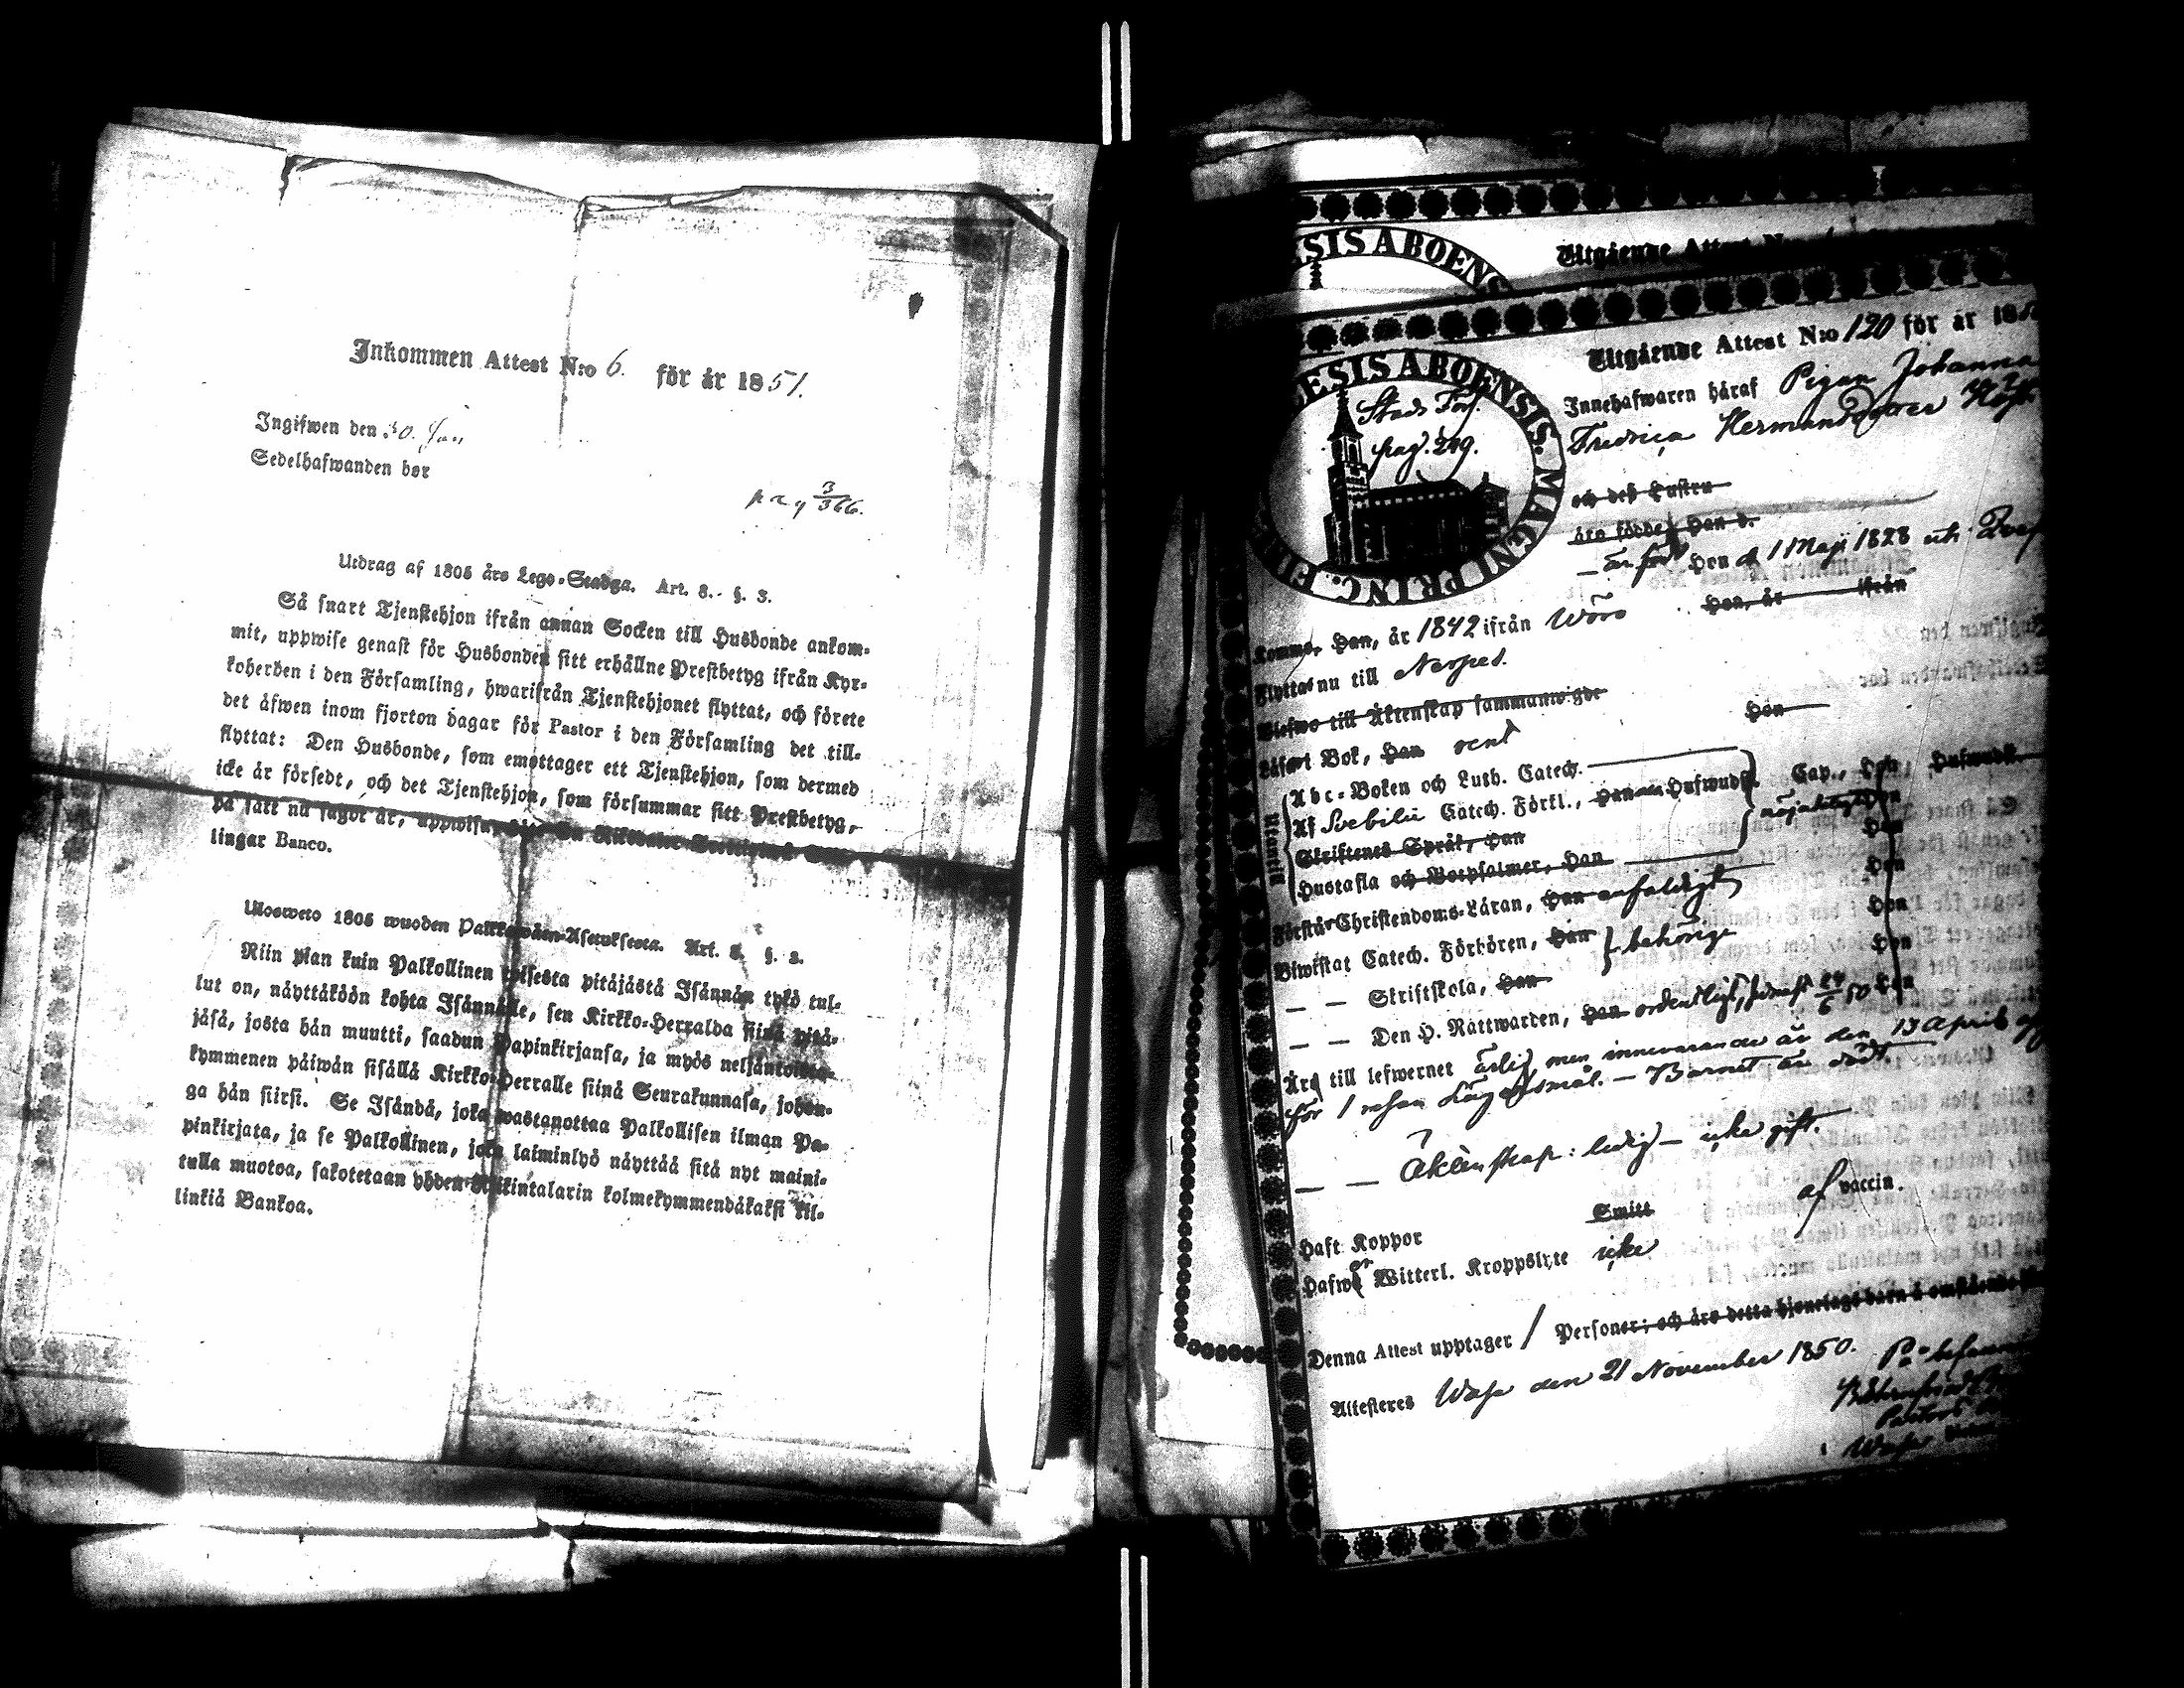 Inkommen Attest N:o 6. för år 1851.
Ingifwen den 30. Jan
Sedelhafwanden bor
pag 3/366.
Utdrag af 1805 års Lego-Stadga. Art. 8. §. 3.
Så snart Tjenstehjon ifrån annan Socken till Husbonde ankom-
mit, uppwise genast för Husbonden sitt erhållne Prestbetyg ifrån Kyr-
koherden i den Församling, hwarifrån Tjenstehjonet flyttat, och förete
det åfwen inom fjorton dagar för Pastor i den Församling det till-
flyttat: Den Husbonde, som emottager ett Tjenstehjon, som dermed
icke är försedt, och det Tjenstehjon, som försummar sitt Prestbetyg,
på sätt nu sagdt är, uppwisa,
lingar Banco.
Ulosweto 1805 wuoden Palkkawäen-Asetuksesta. Art. 8. §. 3.
Niin pian kuin Palkollinen toisesta pitäjästä Isännän tykö tul-
lut on, näyttäköön kohta Isännälle, sen Kirkko-Herralda siinä pitä-
jäsä, josta hän muutti, saadun Papinkirjansa, ja myös neljäntoista-
kymmenen päiwän sisällä Kirkko-Herralle siinä Seurakunnasa, johon-
ga hän siirsi. Se Isändä, joka wastanottaa Palkollisen ilman Pa-
pinkirjata, ja se Palkollinen, joka laiminlyö näyttää sitä nyt maini-
tulla muotoa, sakotetaan yhden Rikintalarin kolmekymmendäkaksi kil-
linkiä Bankoa.
Utgående Attest
ESIS ABOENS
Utgående Attest N:o 120 för år 18
ESIS ABOENSIS. MAGNI PRINC.
Stads Förs.
pag. 249.
Innehafwaren häraf Pigan Johanna
Fredrica Hermansdotter
och deß Hustru
äro födde, Han d.
är född den 1 Maji 1828 uti
Komme, Han, år 1842 ifrån Wörå Hon, år ifrån
Flyttar nu till Nerpes.
Blefwo till Äktenskap sammanwigde
Läser i Bok, Han rent Hon
Utantill
Abc-Boken och Luth. Catech.
Af Svebilii Catech. Förkl., Han Hufwudst. Cap., Hon, Hufwudst.
Skriftenes Språk, Han
Hustafla och Botpsalmer, Han Hon
Förstår Christendoms-Läran, Han enfaldigt Hon
Biwistat Catech. Förhören, Han behörigt Hon
— — Skriftskola, Han Hon
— — Den H. Nattwarden, Han ordentligt, senast 24/6 50 Hon
Är till lefwernet ärlig, men innevarande år den 13 April
för 1 resan Lägersmål. — Barnet är dödt.
— — Äktenskap: ledig — icke gift.
Haft Koppor Smitt af vaccin.
Hafwer Witterl. Kroppslyte icke
Denna Attest upptager 1 Personer; och äro detta hjonelags barn å omstående
Attesteres Wasa den 21 November 1850.
Pastors
Wasa